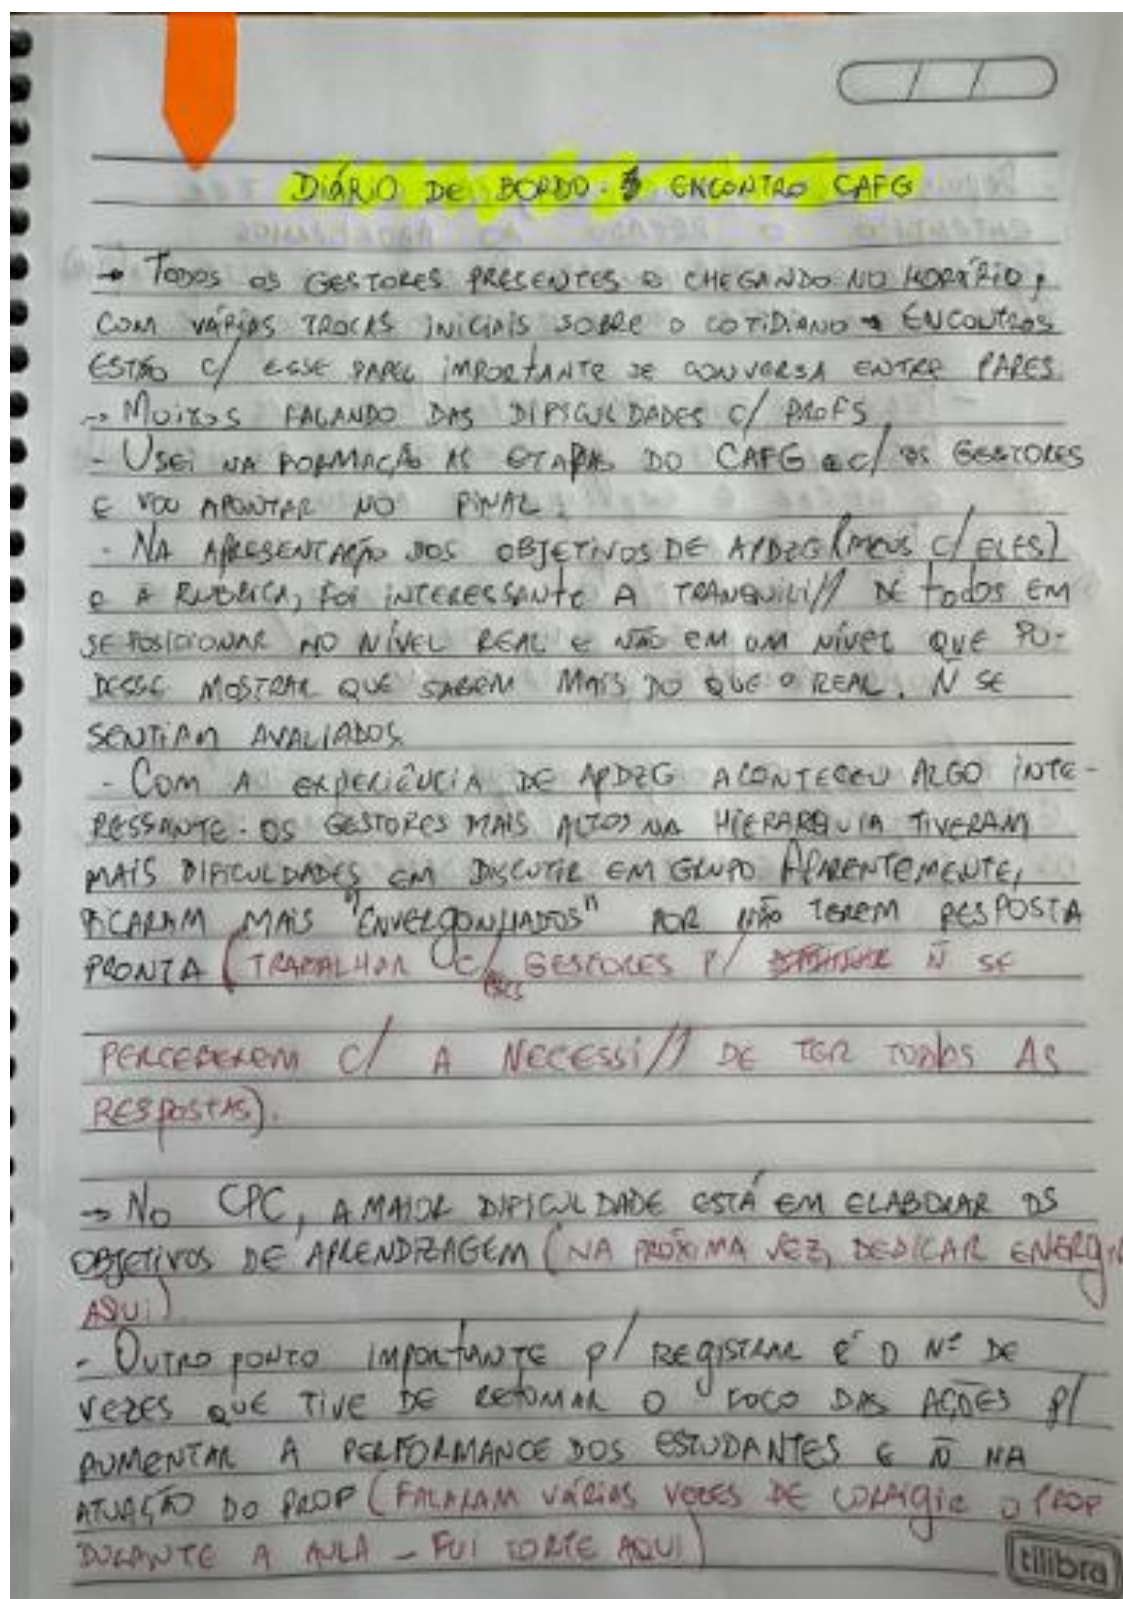 DIÁRIO DE BORDO - ENCONTRO CAFG
→ TODOS OS GESTORES PRESENTES E CHEGANDO NO HORÁRIO,
COM VÁRIAS TROCAS INICIAIS SOBRE O COTIDIANO → ENCONTROS
ESTÃO C/ ESSE PAPEL IMPORTANTE DE CONVERSA ENTRE PARES.
→ MUITOS FALANDO DAS DIFICULDADES C/ PROFS
- USEI NA FORMAÇÃO AS ETAPAS DO CAFG C/ OS GESTORES
E VOU APONTAR NO FINAL.
- NA APRESENTAÇÃO DOS OBJETIVOS DE APDZG (MEUS C/ ELES)
E A RUBRICA, FOI INTERESSANTE A TRANQUILI// DE TODOS EM
SE POSICIONAR NO NÍVEL REAL E NÃO EM UM NÍVEL QUE PU-
DESSE MOSTRAR QUE SABEM MAIS DO QUE O REAL. Ñ SE
SENTIAM AVALIADOS
- COM A EXPERIÊNCIA DE APDZG ACONTECEU ALGO INTE-
RESSANTE - OS GESTORES MAIS ALTOS NA HIERARQUIA TIVERAM
MAIS DIFICULDADES EM DISCUTIR EM GRUPO. APARENTEMENTE,
FICARAM MAIS "ENVERGONHADOS" POR NÃO TEREM RESPOSTA
PRONTA (TRABALHAR C/ GESTORES P/ Ñ SE
PERCEBEREM C/ A NECESSI// DE TER TODAS AS
RESPOSTAS).
→ NO CPC, A MAIOR DIFICULDADE ESTÁ EM ELABORAR OS
OBJETIVOS DE APRENDIZAGEM (NA PRÓXIMA VEZ, DEDICAR ENERGIA
AQUI)
- OUTRO PONTO IMPORTANTE P/ REGISTRAR É O Nº DE
VEZES QUE TIVE DE RETOMAR O FOCO DAS AÇÕES P/
AUMENTAR A PERFORMANCE DOS ESTUDANTES E Ñ NA
ATUAÇÃO DO PROF (FALARAM VÁRIAS VEZES DE CORRIGIR O PROF
DURANTE A AULA - FUI FORTE AQUI)
tilibra